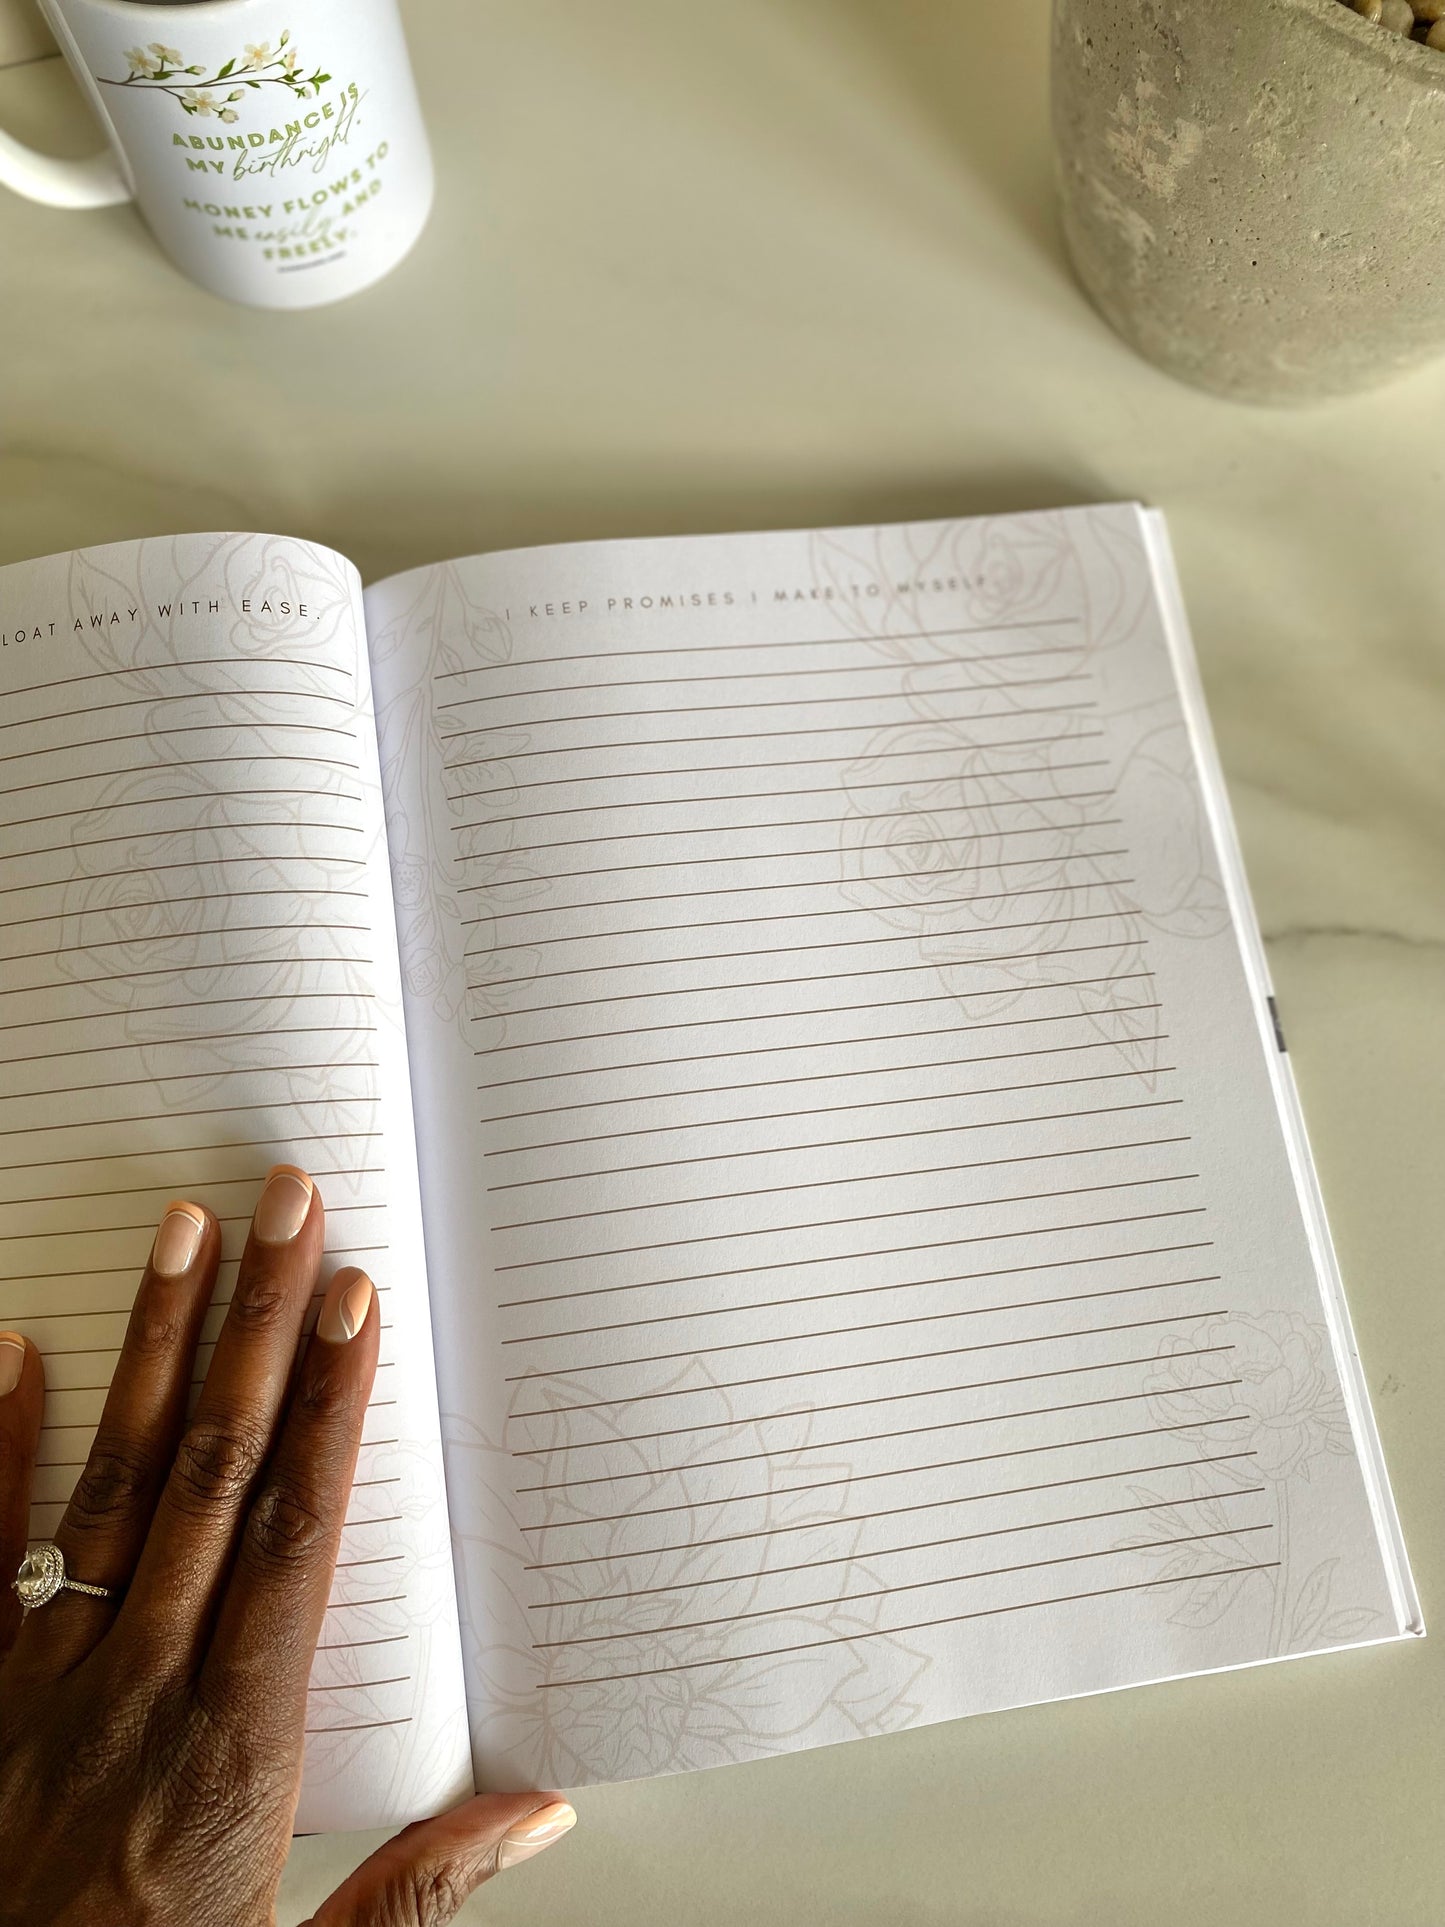 ABUNDANCE IS
MY birthright.
MONEY FLOWS TO
ME easily AND
FREELY.
LOAT AWAY WITH EASE.
I KEEP PROMISES I MAKE TO MYSELF.